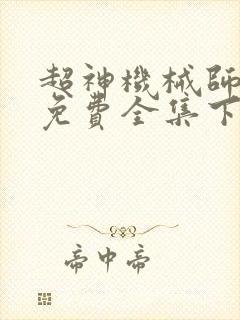 超神機械師
免費全集下
帝中帝